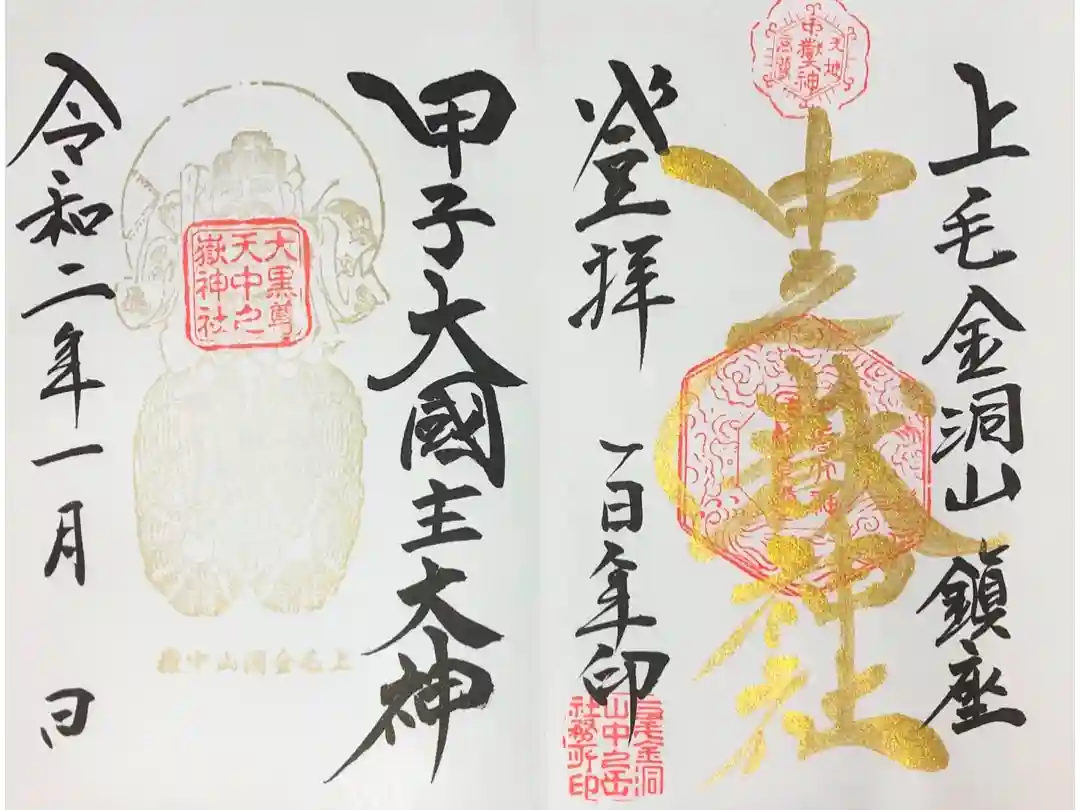 上毛金洞山 鎮座
中之嶽神社
登拝 一百年印
上毛金洞
山中之岳
社務所印
甲子大國主大神
大黒尊
天中之
嶽神社
上毛金洞山中嶽
令和二年一月 日